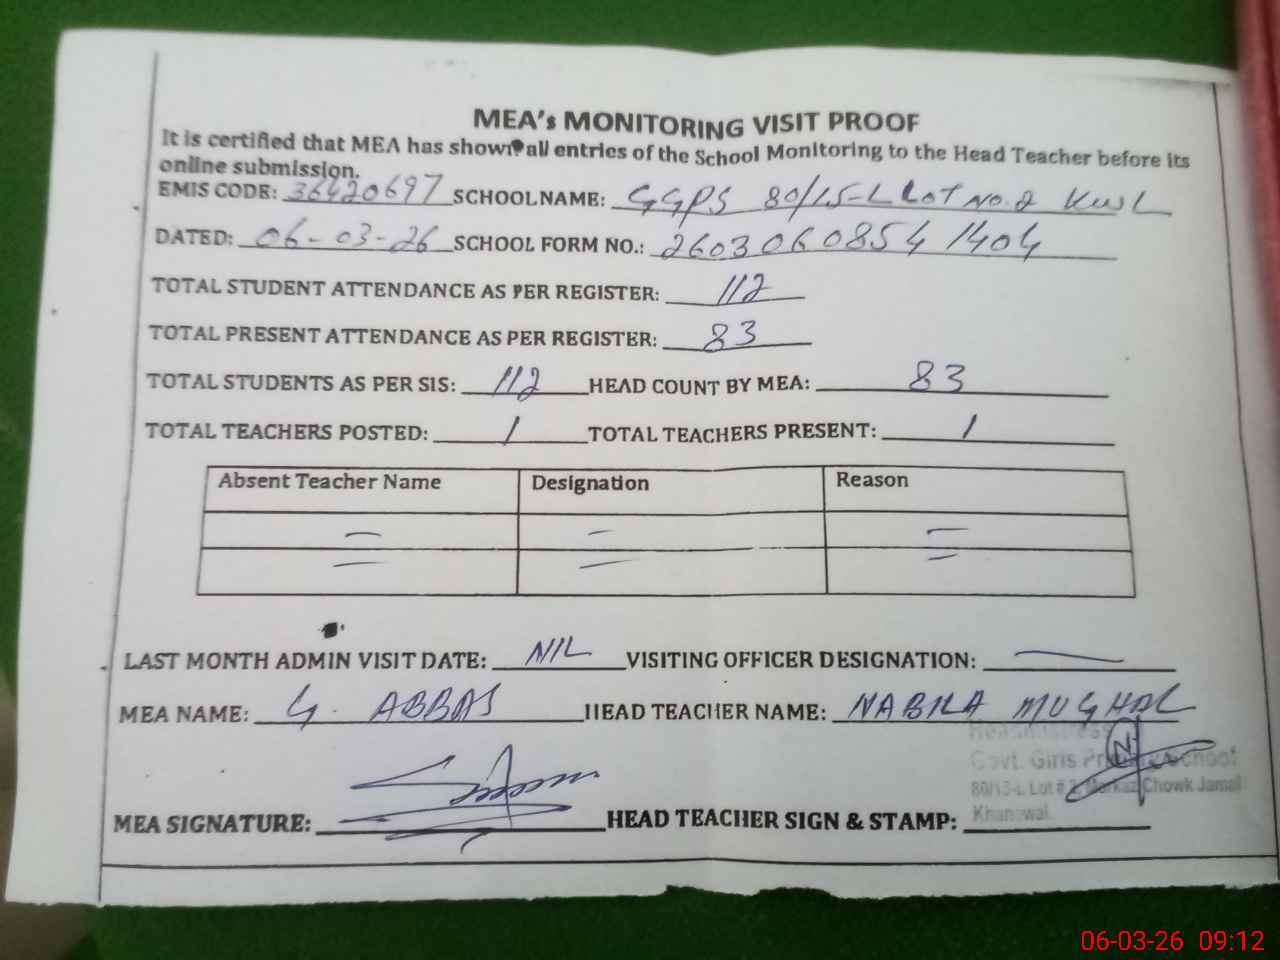 MEA's MONITORING VISIT PROOF
It is certified that MEA has shown all entries of the School Monitoring to the Head Teacher before its
online submission.
EMIS CODE: 36420697 SCHOOL NAME: GGPS 80/15-L Lot No.2 KWL
DATED: 06-03-26 SCHOOL FORM NO.: 2603060854 1404
TOTAL STUDENT ATTENDANCE AS PER REGISTER: 112
TOTAL PRESENT ATTENDANCE AS PER REGISTER: 83
TOTAL STUDENTS AS PER SIS: 112 HEAD COUNT BY MEA: 83
TOTAL TEACHERS POSTED: 1 TOTAL TEACHERS PRESENT: 1
Absent Teacher Name Designation Reason
LAST MONTH ADMIN VISIT DATE: NIL VISITING OFFICER DESIGNATION: —
MEA NAME: G. ABBAS HEAD TEACHER NAME: NABILA MUGHAL
Headmistress
Govt. Girls Primary School
80/15-L Lot # 2, Markaz Chowk Jamal
Khanewal
MEA SIGNATURE: HEAD TEACHER SIGN & STAMP:
06-03-26 09:12